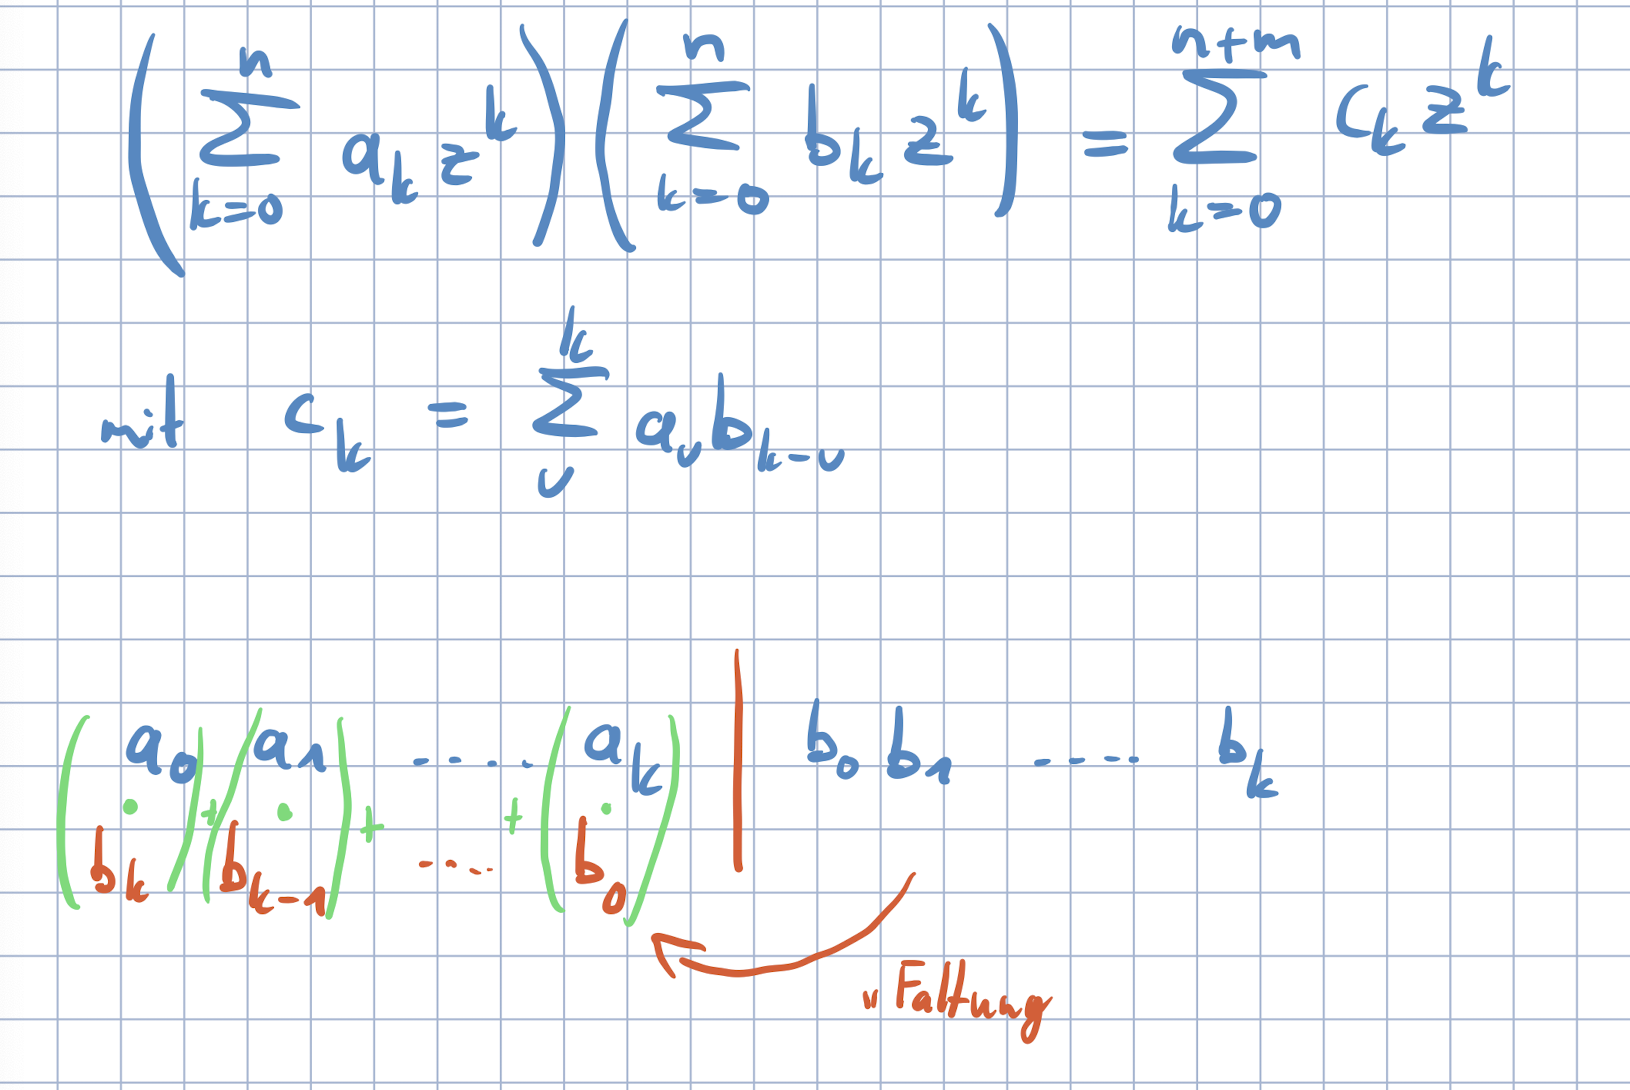 (∑_{k=0}^{n} a_k z^k) (∑_{k=0}^{n} b_k z^k) = ∑_{k=0}^{n+m} c_k z^k
mit c_k = ∑_{ν}^{k} a_ν b_{k-ν}
(a_0 · b_k) + (a_1 · b_{k-1}) + .... + (a_k · b_0) | b_0 b_1 .... b_k
"Faltung